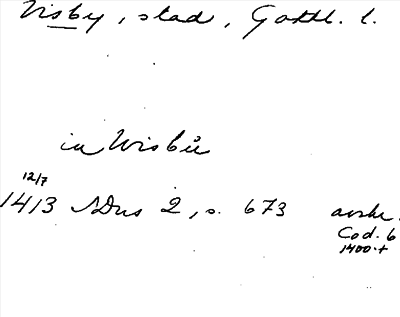 Visby, stad, Gotll. l.
in Wisbü
12/7
1413 SDns 2, s. 673 avskr.
Cod. 6
1400-t